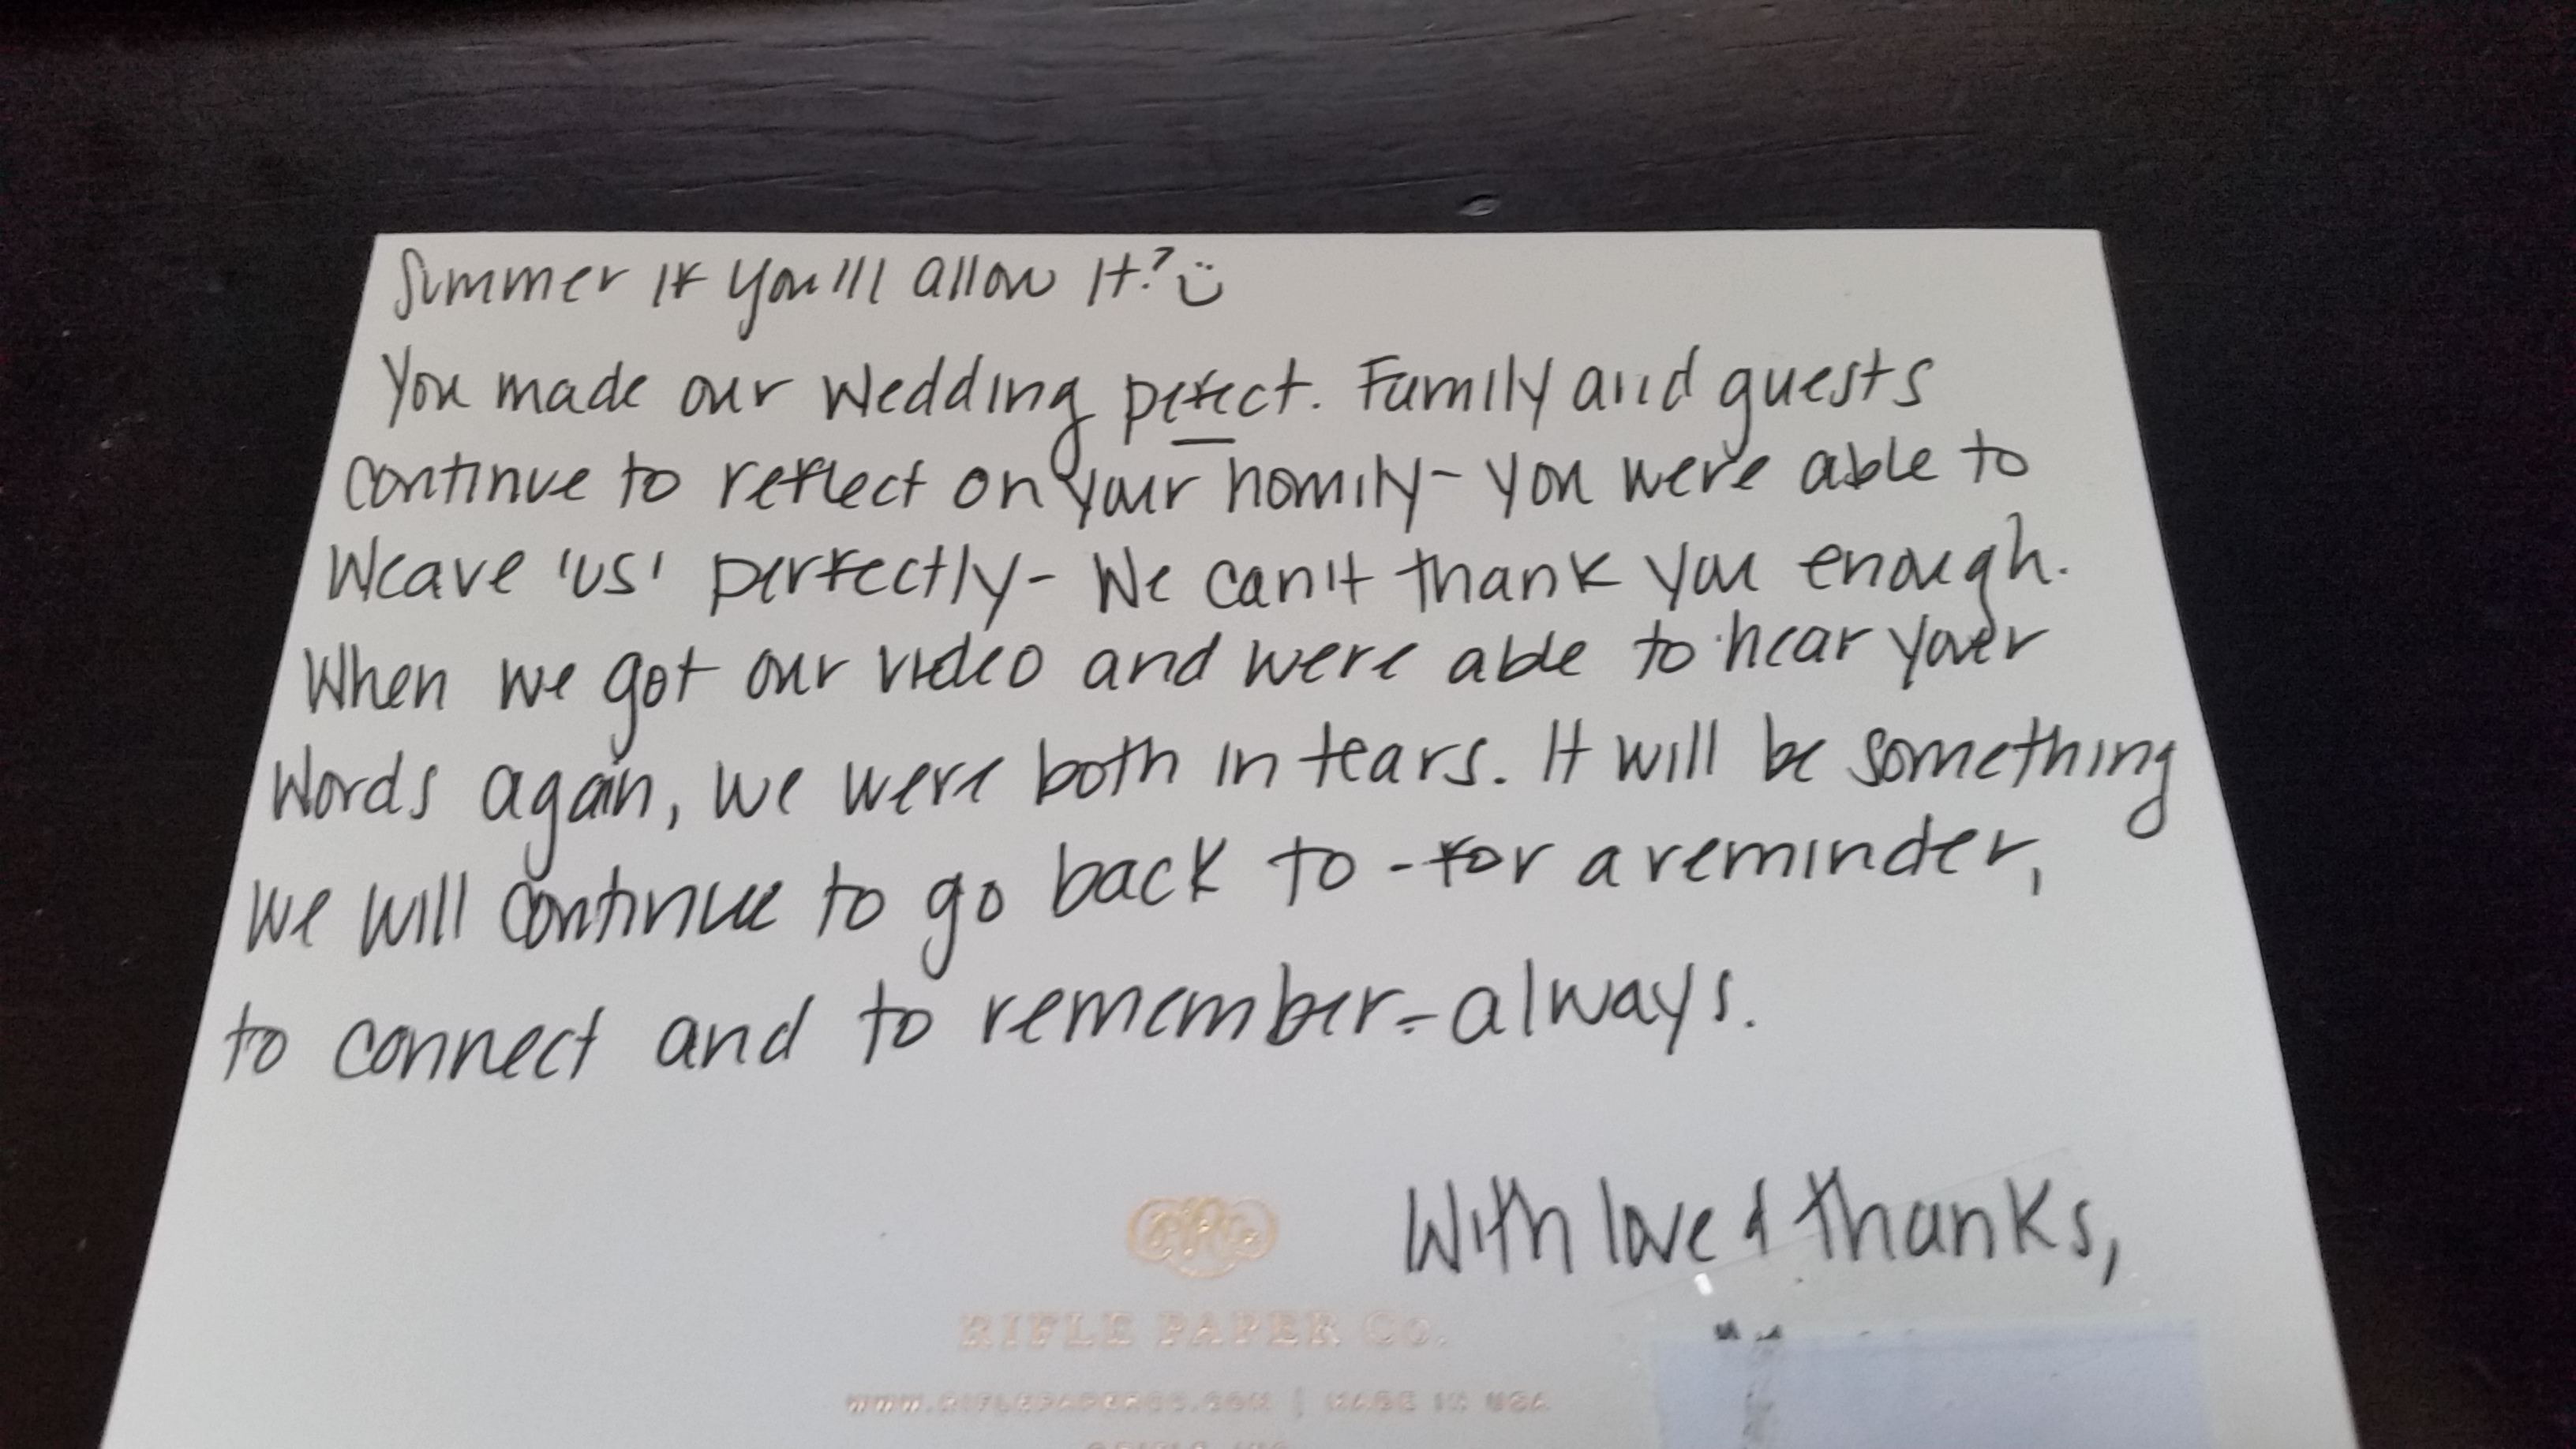 Summer if you'll allow it? :)
You made our wedding pefect. Family and guests
continue to reflect on your homily - you were able to
weave 'us' perfectly - We can't thank you enough.
When we got our video and were able to hear your
words again, we were both in tears. It will be something
we will continue to go back to - for a reminder,
to connect and to remember - always.
With love & thanks,
RIFLE PAPER Co.
WWW.RIFLEPAPERCO.COM | MADE IN USA